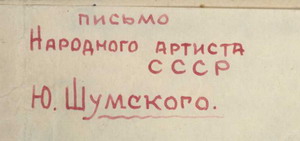 письмо
Народного артиста
СССР
Ю. Шумского.